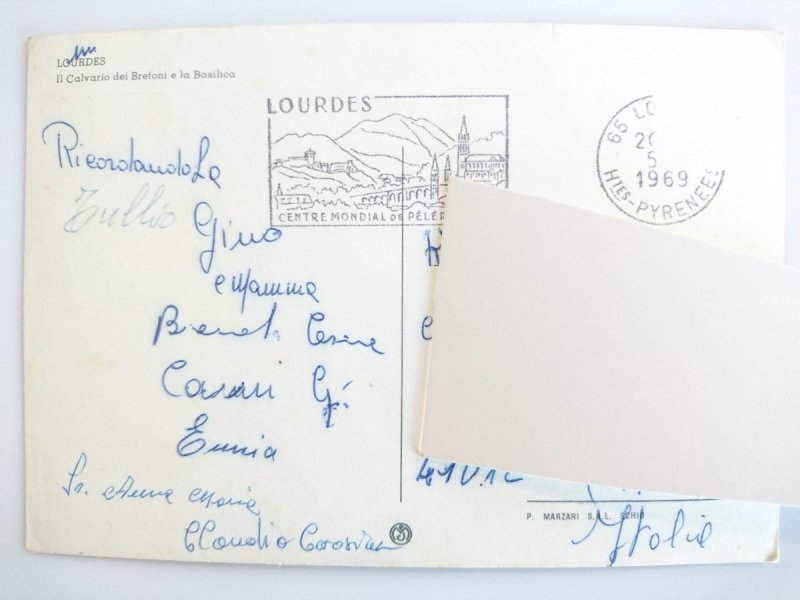 LOURDES
Il Calvario dei Bretoni e la Basilica
LOURDES
CENTRE MONDIAL DE PÉLÉR
65 LO
20
5
1969
HTES-PYRENEES
RicordandoLa
Tullio
Gino
e Mamma
Cesare
Casari G.
Ennia
Sr. Anna Maria
Claudio
P. MARZARI S.R.L. SCHIO
Italia